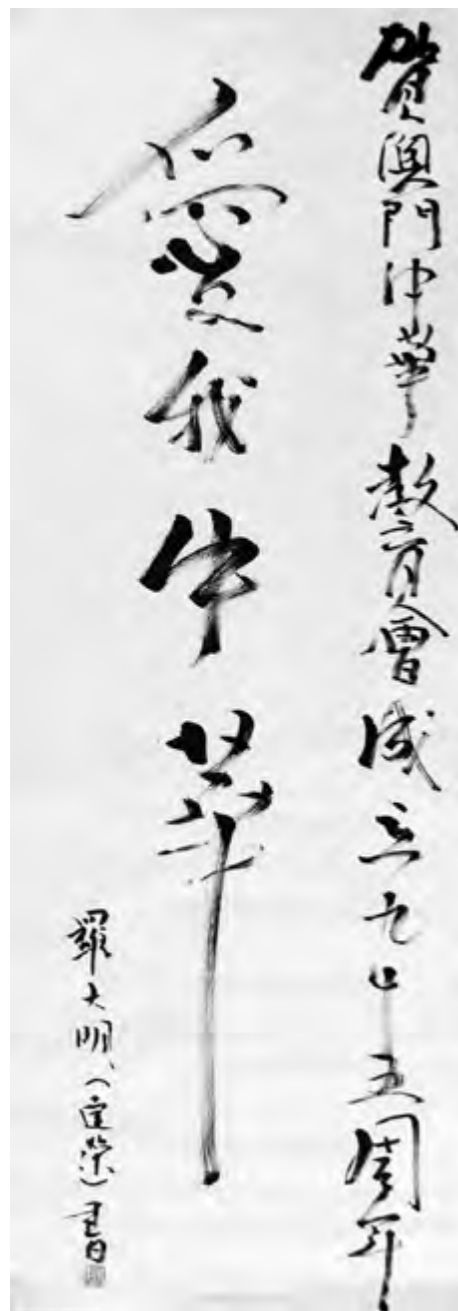 賀澳門中華教育會成立九十五周年
愛我中華
羅大明（達榮）書